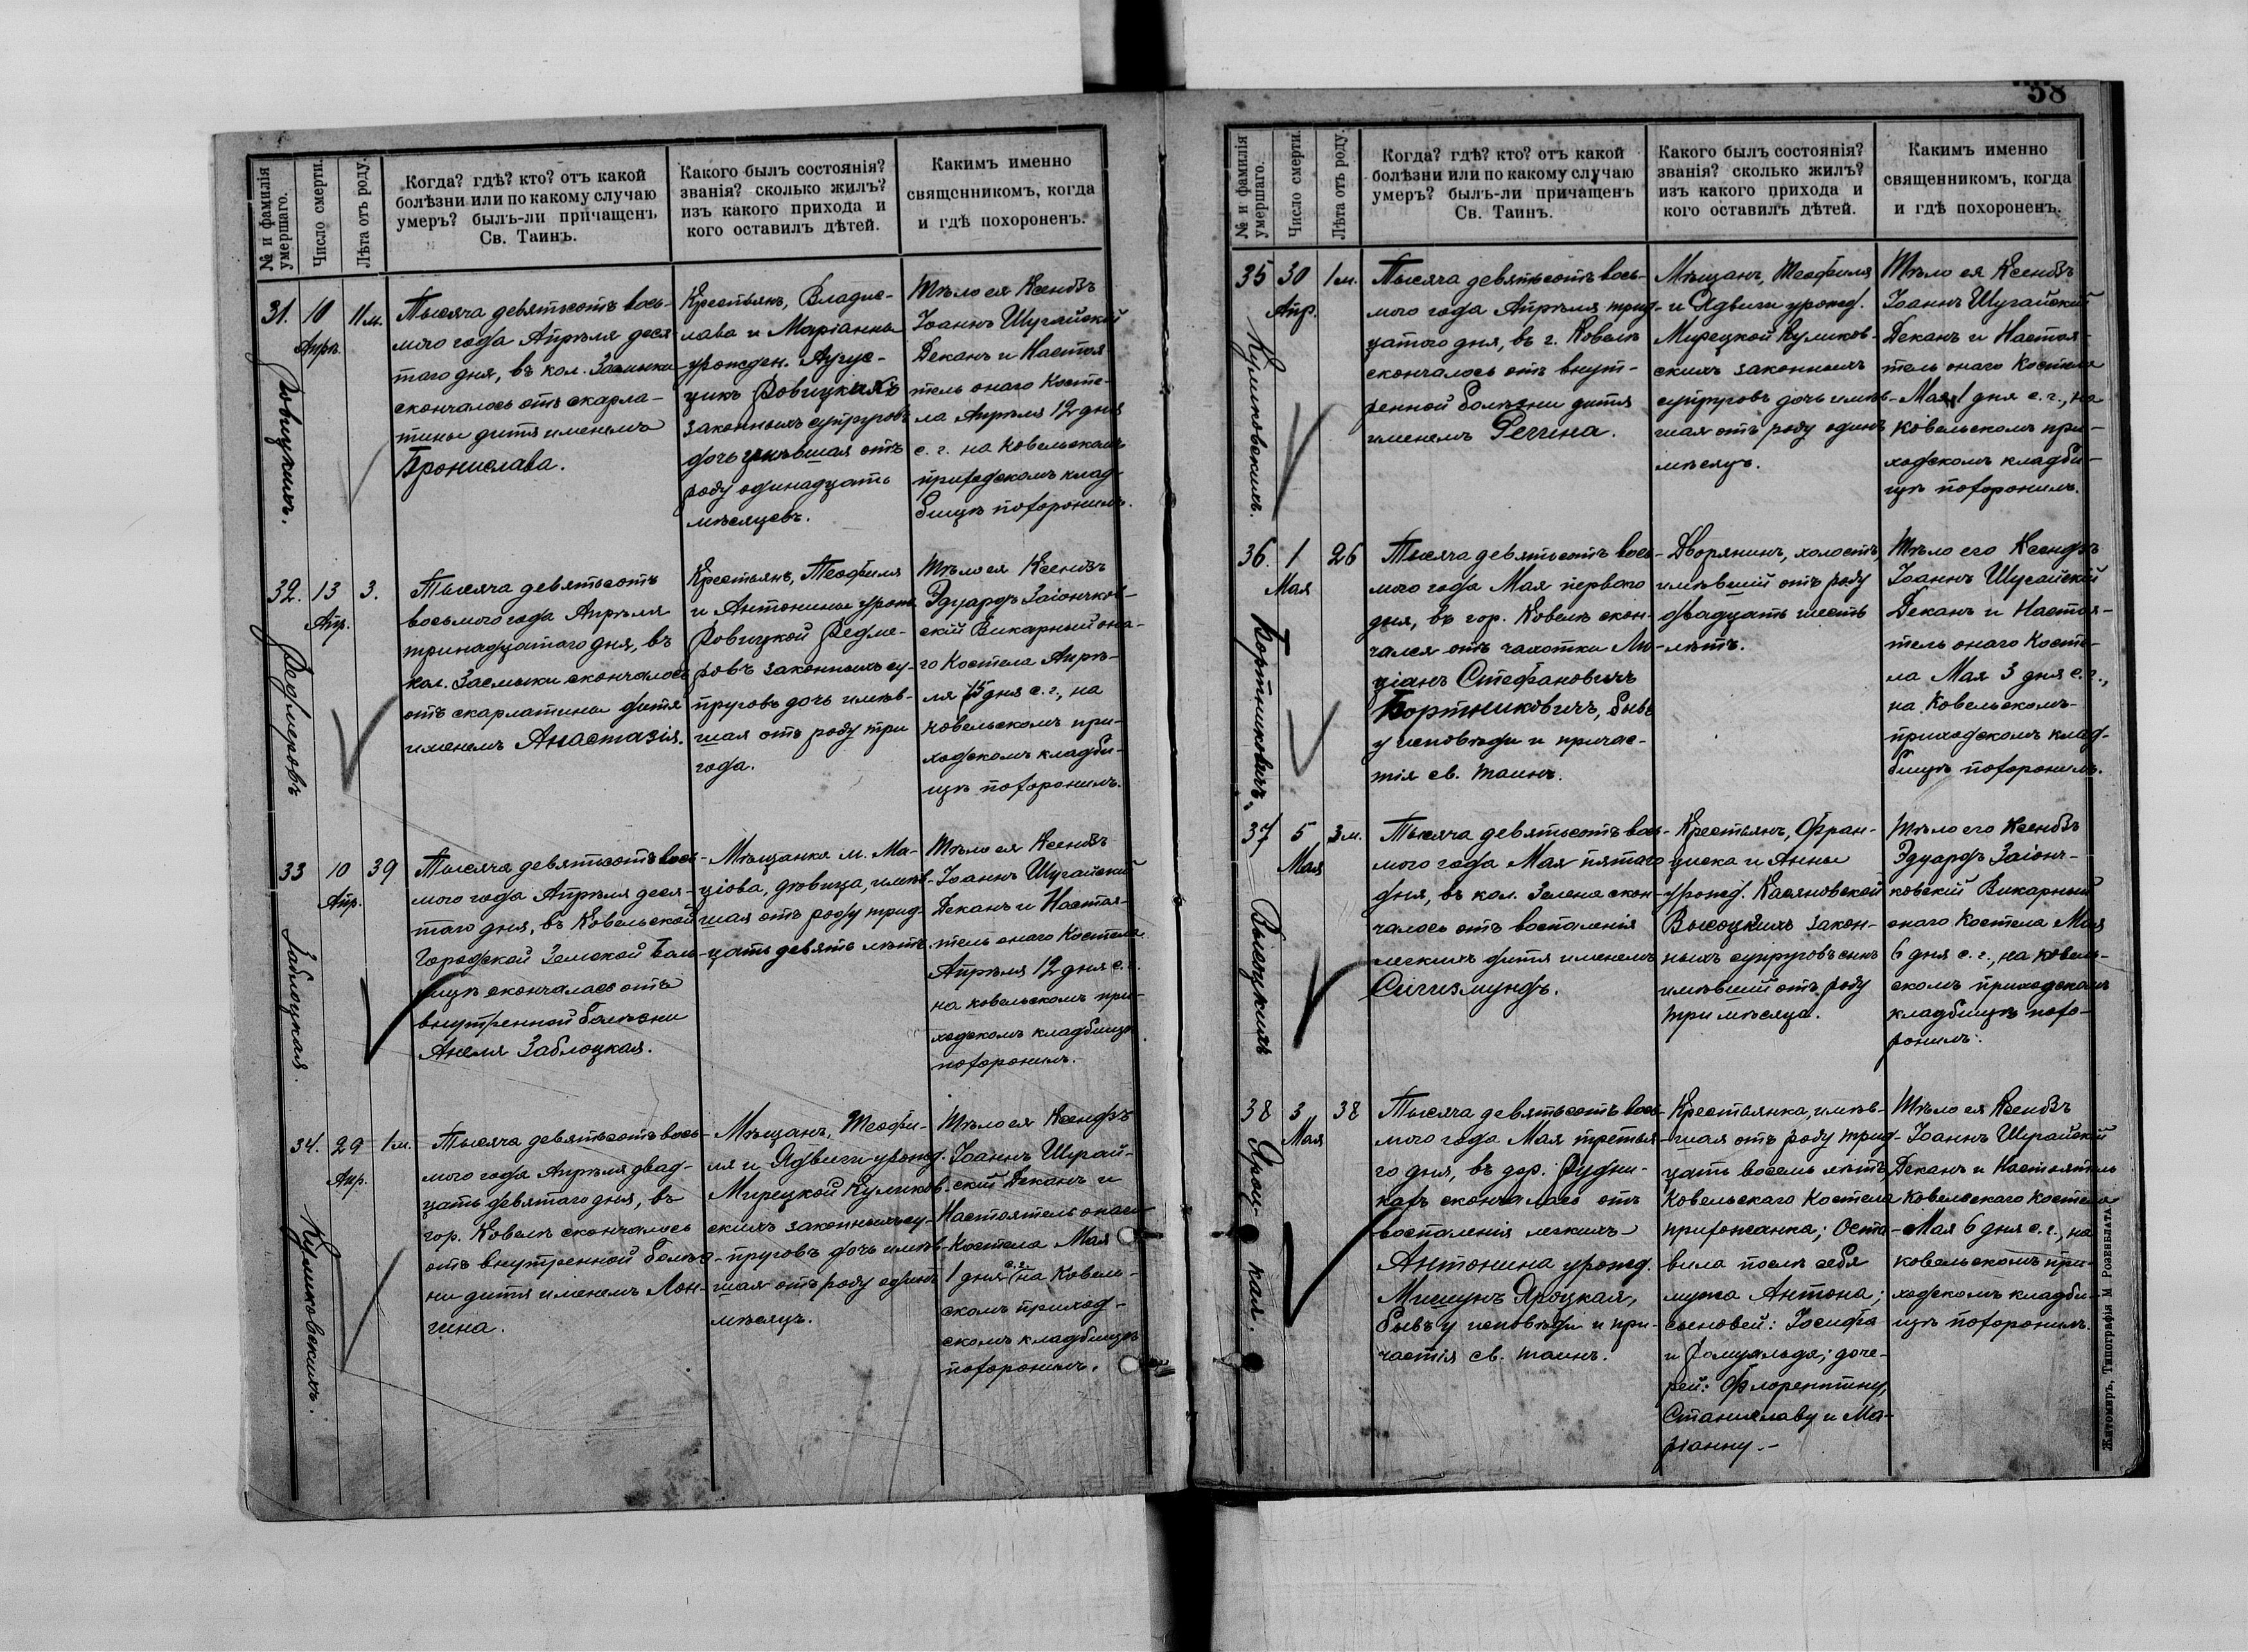 № и фамилія
умершаго.
Число смерти.
Лѣта отъ роду.
Когда? гдѣ? кто? отъ какой
болѣзни или по какому случаю
умеръ? былъ-ли причащенъ
Св. Таинъ.
Какого былъ состоянія?
званія? сколько жилъ?
изъ какого прихода и
кого оставилъ дѣтей.
Каким
ъ именно
священникомъ, когда
и гдѣ похороненъ.
31.
Ровицкихъ.
10
Апрѣ.
11 м.
Тысяча девятьсотъ вось-
мого года Апрѣля деся
таго дня, въ кол. Засмыки
скончалось отъ скарла-
тины дитя именемъ
Бронислава.
Крестьянъ, Владис-
лава и Маріанны
урожден. Аугус-
цикъ Ровицкихъ
законныхъ супруговъ
дочь имѣвшая отъ
роду одинадцать
мѣсяцевъ.
Тѣло ея Ксендзъ
Іоаннъ Шугайскій
Деканъ и Настоя-
тель онаго Косте-
ла Апрѣля 12 дня
с. г. на Ковельскомъ
приходскомъ клад-
бищѣ похоронилъ.
32.
Редлеровъ
13
Апр.
3.
Тысяча девятьсотъ
восьмого года Апрѣля
тринадцатаго дня, въ
кол. Засмыки скончалось
отъ скарлатины дитя
именемъ Анастазія.
Крестьянъ, Теофиля
и Антонины урож.
Ровицкой Редле-
ровъ законныхъ су-
пруговъ дочь имѣв-
шая отъ роду три
года.
Тѣло ея Ксендзъ
Эдуардъ Заіончков-
скій Викарный она-
го Костела Апрѣ-
ля 15 дня с. г., на
Ковельскомъ при-
ходскомъ кладби-
щѣ похоронилъ.
33
Заблоцкая.
10
Апр.
39
Тысяча девятьсотъ вось-
мого года Апрѣля деся-
таго дня, въ Ковельской
Городской Земской боль-
ницѣ скончалась отъ
внутренной болѣзни
Анеля Заблоцкая.
Мѣщанка м. Ма-
ціова, дѣвица, имѣв-
шая отъ роду трид-
цать девять лѣтъ.
Тѣло ея Ксендзъ
Іоаннъ Шугайскій
Деканъ и Настоя-
тель онаго Костела
Апрѣля 12 дня с. г.
на Ковельскомъ при-
ходскомъ кладбищѣ
похоронилъ.
34.
Куликовскихъ.
29
Апр.
1 м.
Тысяча девятьсотъ вось-
мого года Апрѣля двад-
цать девятаго дня, въ
гор. Ковелѣ скончалось
отъ внутренной болѣз-
ни дитя именемъ Лон-
гина.
Мѣщанъ, Теофи-
ля и Ядвиги урожд.
Мирецкой Куликов-
скихъ законныхъ су-
пруговъ дочь имѣв-
шая отъ роду одинъ
мѣсяцъ.
Тѣло ея Ксендзъ
Іоаннъ Шугай-
скій Деканъ и
Настоятель онаго
Костела Мая
1 дня с. г. на Ковель-
скомъ приход-
скомъ кладбищѣ
похоронилъ.
38
№ и фамилія
умершаго.
Число смерти.
Лѣта отъ роду.
Когда? гдѣ? кто? отъ какой
болѣзни или по какому случаю
умеръ? былъ-ли причащенъ
Св. Таинъ.
Какого былъ состоянія?
званія? сколько жилъ?
изъ какого прихода и
кого оставилъ дѣтей.
Какимъ именно
священникомъ, когда
и гдѣ похороненъ.
35
Куликовскихъ.
30
Апр.
1 м.
Тысяча девятьсотъ вось-
мого года Апрѣля трид-
цатого дня, въ г. Ковелѣ
скончалось отъ внут-
ренной болѣзни дитя
именемъ Регина.
Мѣщанъ, Теофиля
и Ядвиги урожд.
Мирецкой Куликов-
скихъ законныхъ
супруговъ дочь имѣв-
шая отъ роду одинъ
мѣсяцъ.
Тѣло ея Ксендзъ
Іоаннъ Шугайскій
Деканъ и Настоя-
тель онаго Костела
Мая 1 дня с. г., на
Ковельскомъ при-
ходскомъ кладби-
щѣ похоронилъ.
36.
Бортниковичъ.
1
Мая
26
Тысяча девятьсотъ вось-
мого года Мая перваго
дня, въ гор. Ковелѣ скон-
чался отъ чахотки Лю-
ціанъ Стефановичъ
Бортниковичъ, бывъ
у исповѣди и причас-
тія св. таинъ.
Дворянинъ, холостъ,
имѣвшій отъ роду
двадцать шесть
лѣтъ.
Тѣло его Ксендзъ
Іоаннъ Шугайскій
Деканъ и Настоя-
тель онаго Косте-
ла Мая 3 дня с. г.,
на Ковельскомъ
приходскомъ клад-
бищѣ похоронилъ.
37
Высоцкихъ
5
Мая
3 м.
Тысяча девятьсотъ вось-
мого года Мая пятаго
дня, въ кол. Зелена скон-
чалось отъ воспаленія
легкихъ дитя именемъ
Сигизмундъ.
Крестьянъ, Фран-
циска и Анны
урожд. Касяновской
Высоцкихъ закон-
ныхъ супруговъ сынъ
имѣвшій отъ роду
три мѣсяца.
Тѣло его Ксендзъ
Эдуардъ Заіонч-
ковскій Викарный
онаго Костела Мая
6 дня с. г., на Ковель-
скомъ приходскомъ
кладбищѣ похо-
ронилъ.
38
Яроц-
кая.
3
Мая
38
Тысяча девятьсотъ вось-
мого года Мая третья-
го дня, въ дер. Рудни-
кахъ скончалась отъ
воспаленія легкихъ
Антонина урожд.
Мишунъ Яроцкая,
бывъ у исповѣди и при-
частія св. таинъ.
Крестьянка, имѣв-
шая отъ роду трид-
цать восемь лѣтъ,
Ковельскаго Костела
прихожанка; Оста-
вила послѣ себя
мужа Антона;
сыновей: Іосифа
и Ромуальда; доче-
рей: Флорентину,
Станиславу и Ма-
ріанну.-
Тѣло ея Ксендзъ
Іоаннъ Шугайскій
Деканъ и Настоятель
Ковельскаго Костела
Мая 6 дня с. г., на
Ковельскомъ при-
ходскомъ кладби-
щѣ похоронилъ.
Житомиръ, Типографія М Розенблата.